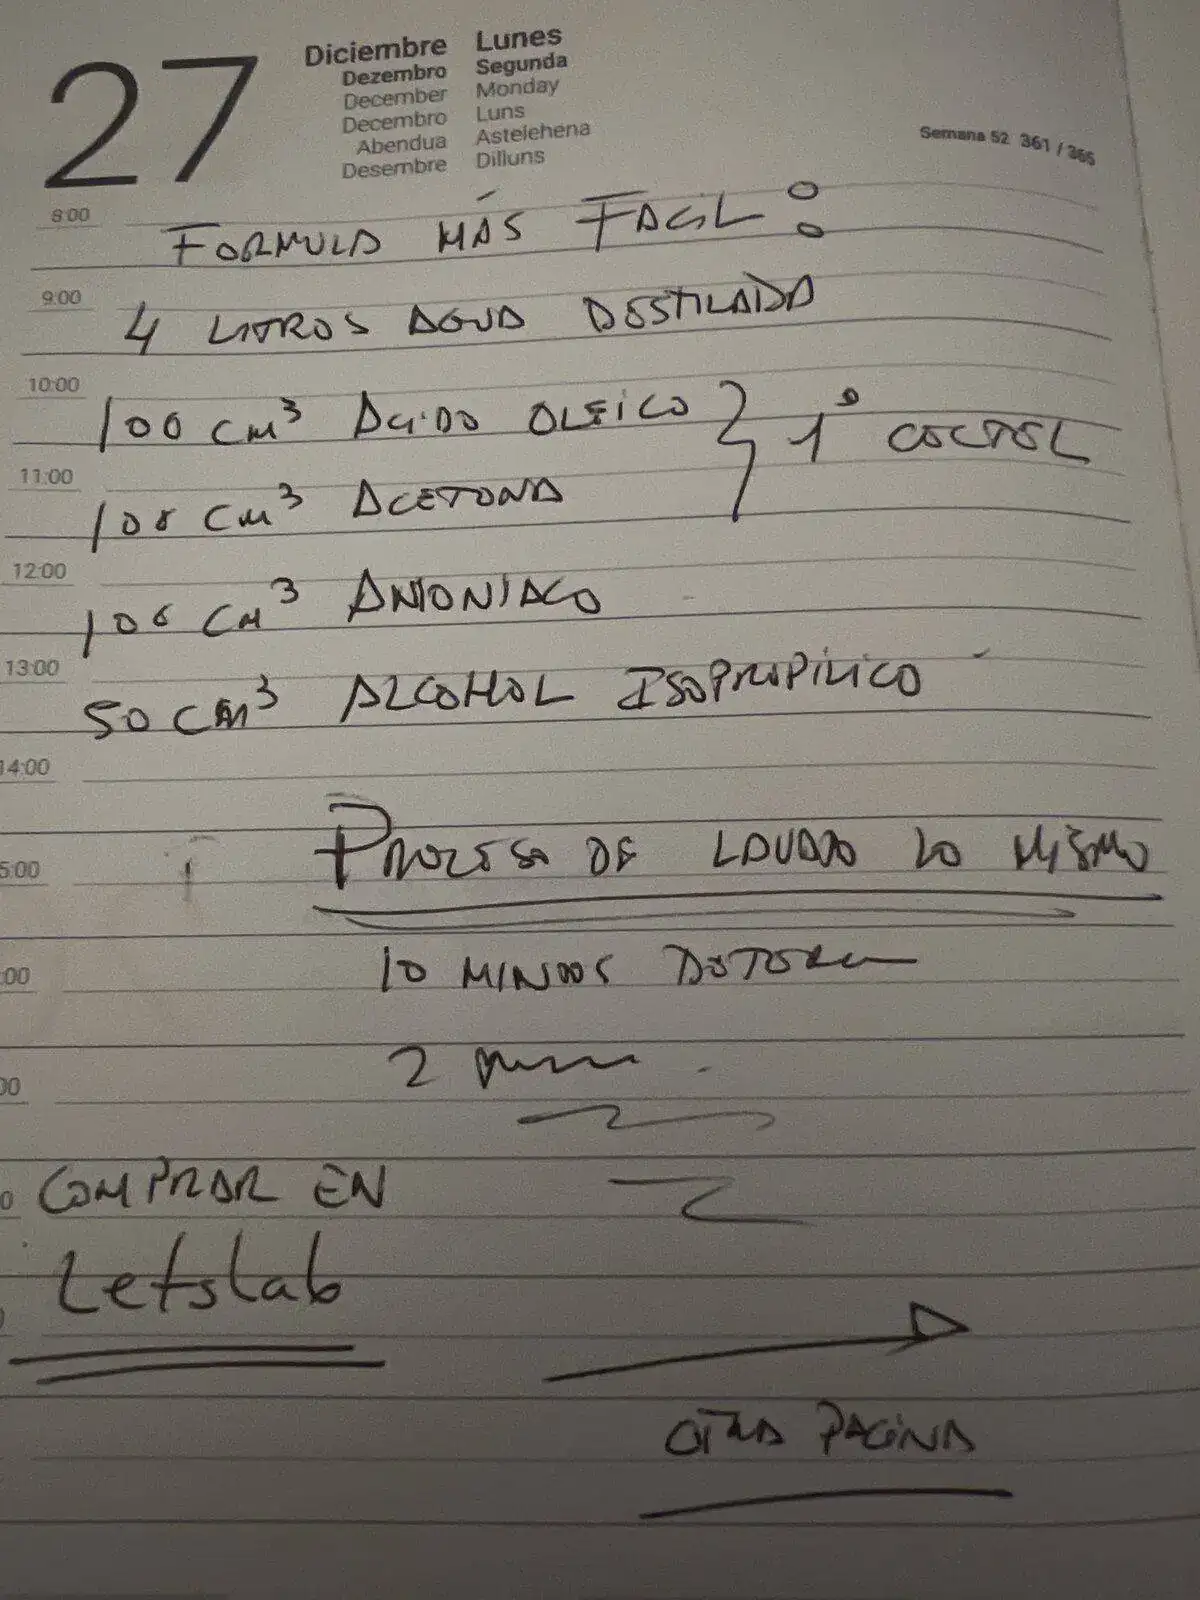 27
Diciembre Lunes
Dezembro Segunda
December Monday
Decembro Luns
Abendua Astelehena
Desembre Dilluns
Semana 52 361 / 365
8:00
FORMULA MÁS FACIL:
9:00
4 LITROS AGUA DESTILADA
10:00
100 CM³ ACIDO OLEICO } 1º COCTEL
11:00
100 CM³ ACETONA
12:00
100 CM³ AMONIACO
13:00
50 CM³ ALCOHOL ISOPROPILICO
14:00
PROCESO DE LAVADO LO MISMO
5:00
10
:00
2
00
COMPRAR EN
0
Letslab
OTRA PAGINA